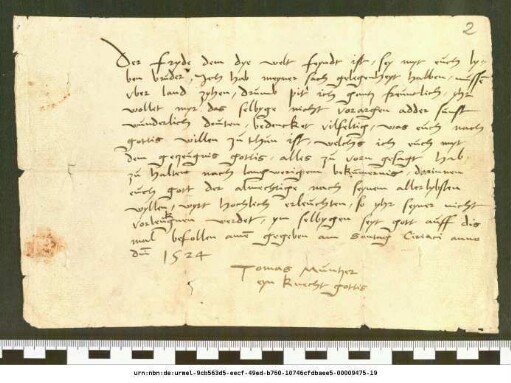 2
Der fryde dem dye welt feyndt ist, sey myt euch ly-
ben bruder, Ich hab meyner sach gelegenheyt halben, musse
vber land zyhen, drumb pit ich gantz freuntlich, yhr
wollet myr das selbyge nicht vorargen adder sunst
wunderlich deuten, bedencket vilfeltig, was euch nach
gottis willen zu thun ist, welchs ich euch myt
dem gezeugnis gottis, alles zu vorn gesagt hab
zu halten nach langwerigem bekummernis, dorinnen
euch gott der almechtige nach seynem allerlybsten
wyllen, wyrt hochlich erleuchten, so yhr seyner nicht
vorleugknen werdet, ym selbygen seyt gott auff dis
mal befollen amen gegeben am sontag Ciriaci anno
dni 1524
Tomas Müntzer
eyn knecht gottis
urn:nbn:de:urmel-9cb563d5-eecf-49ed-b760-10746cfdbaee5-00009475-19